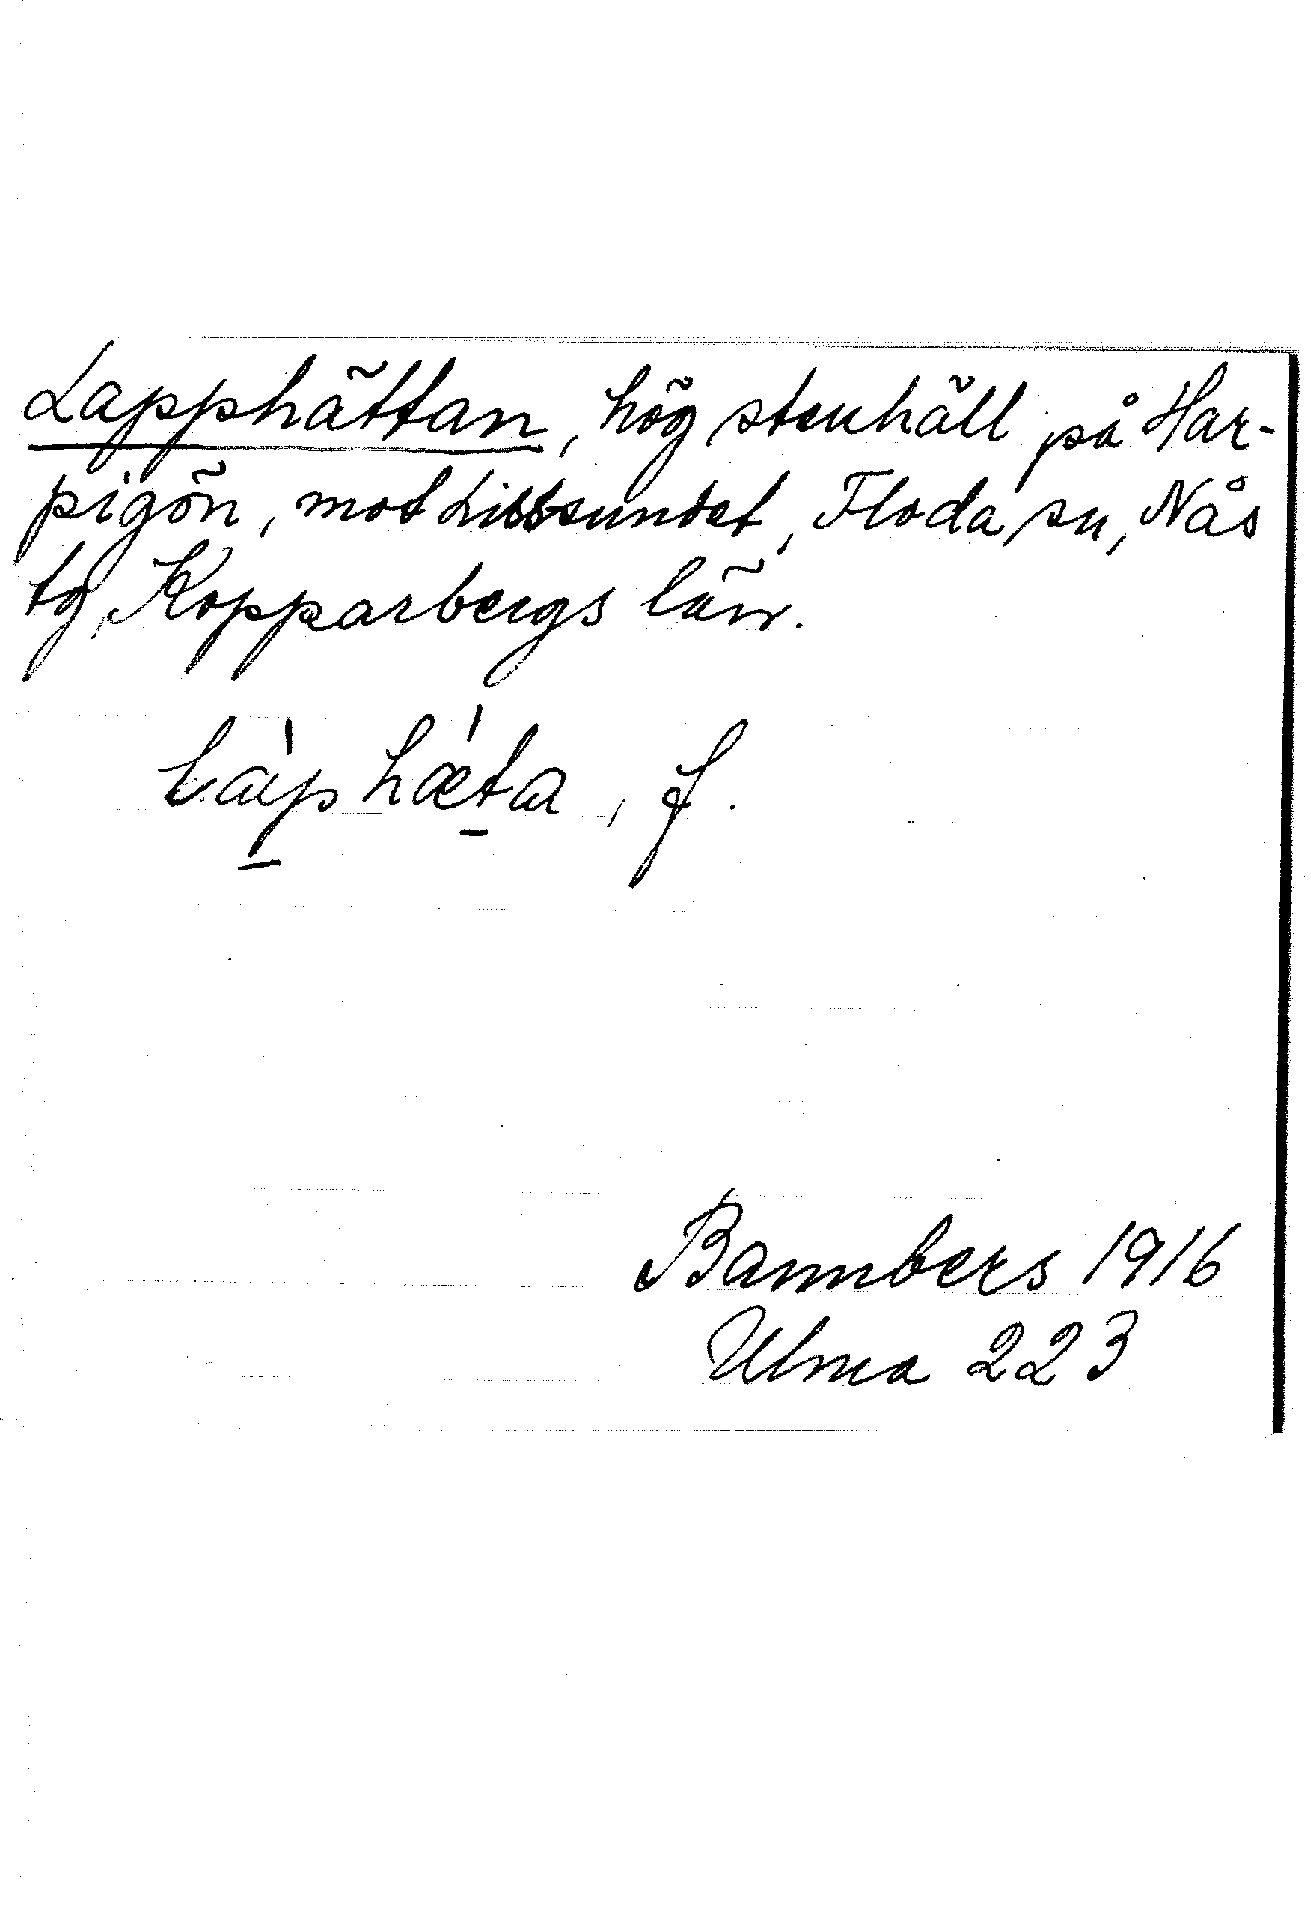 Lapphättan, hög stenhäll på Har-
pigön, mot sundet, Floda sn, Nås
tg, Kopparbergs län.
làp hæta, f.
Bannbers 1916
Ulma 223